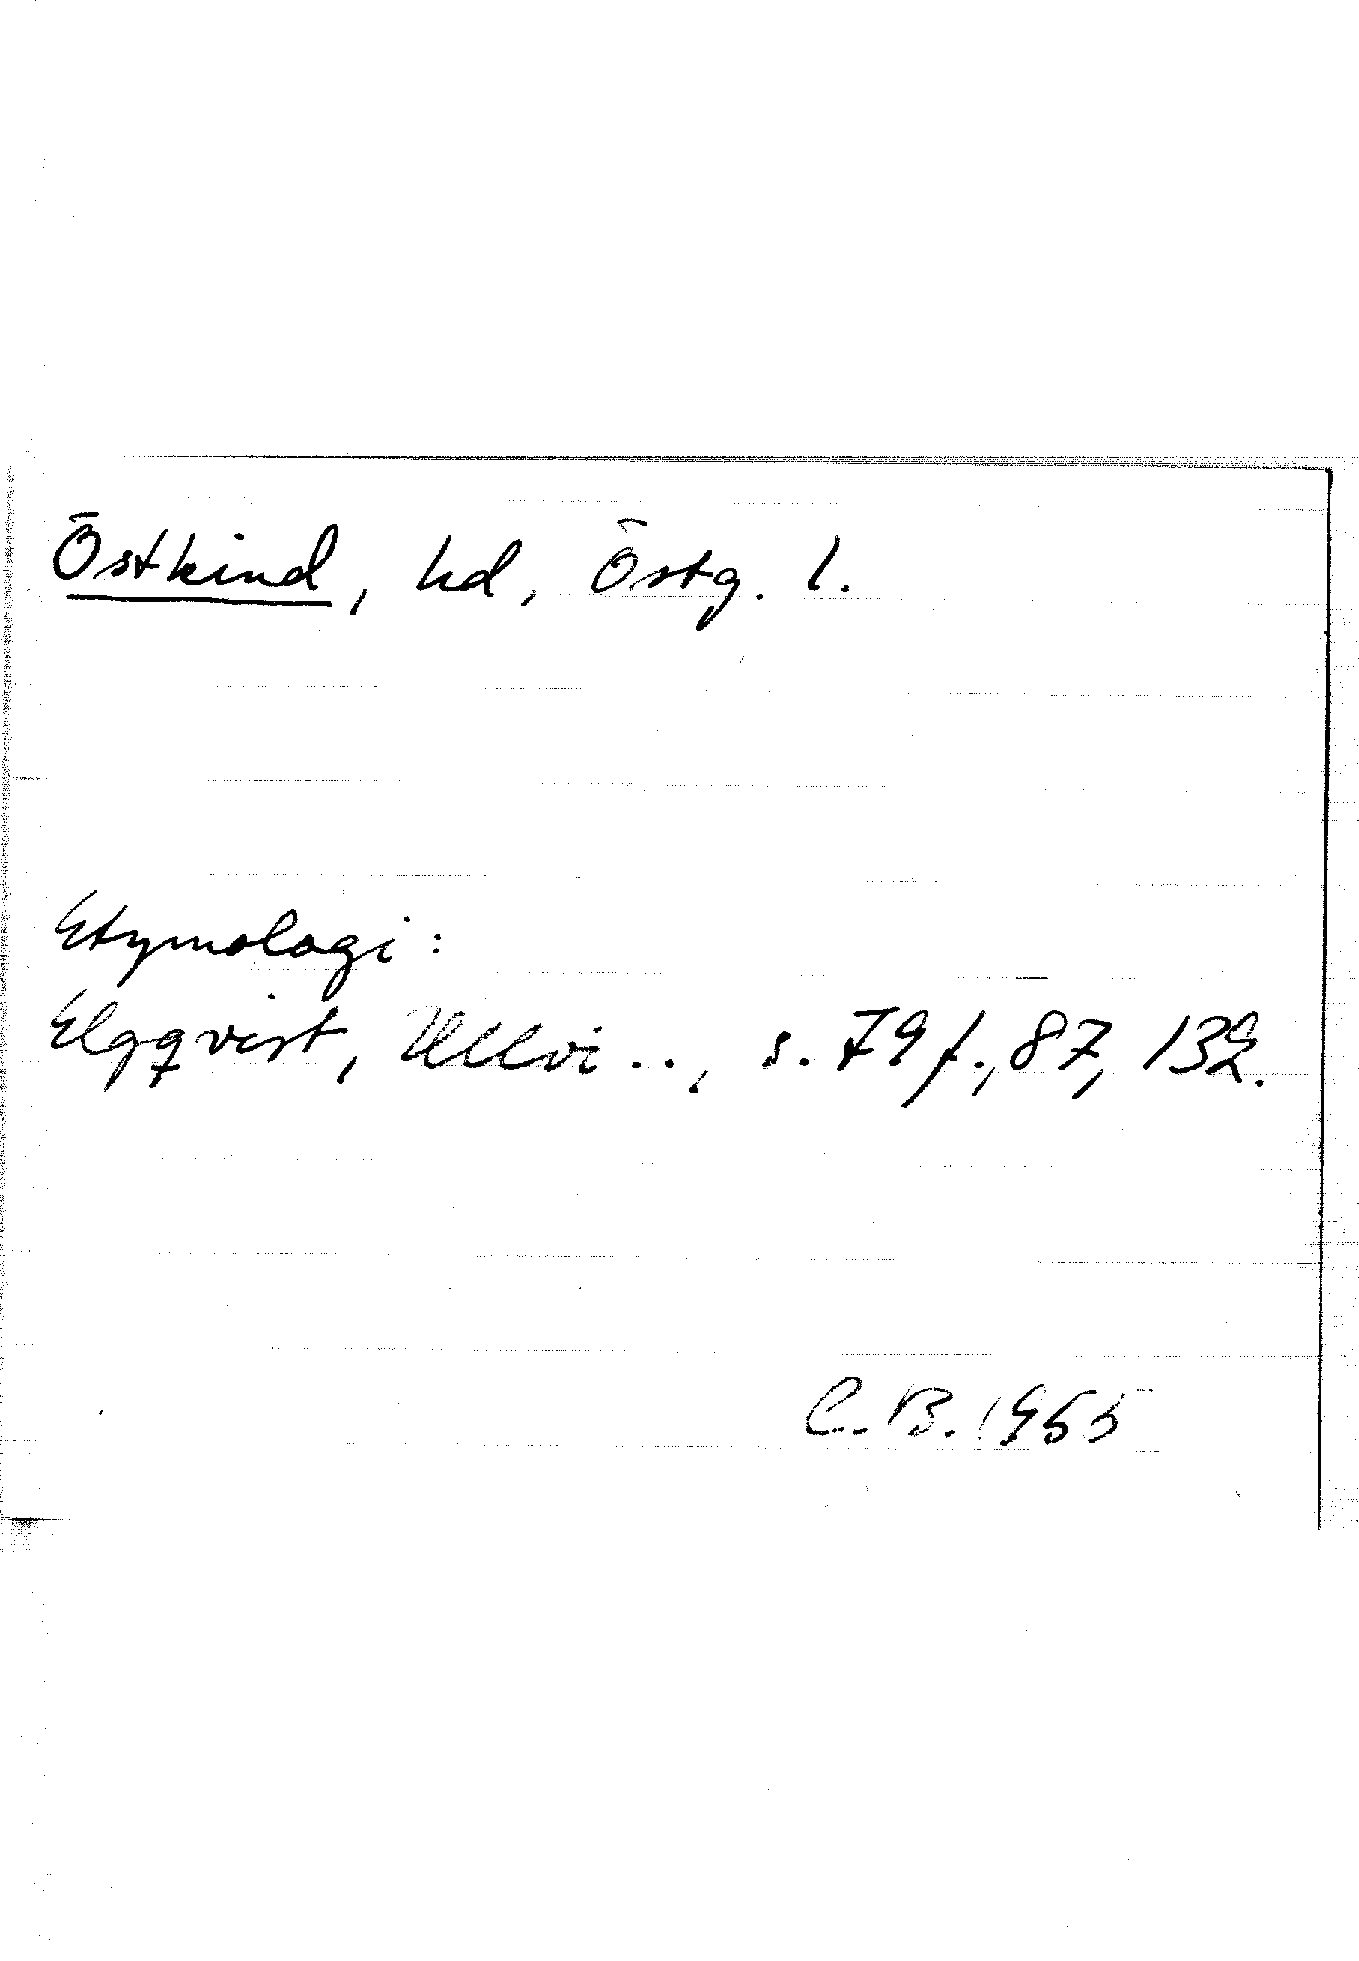 Östkind, hd, Östg. l.
Etymologi:
Elgqvist, Ullvi.., s. 79 f., 87, 132.
C. B. 1955